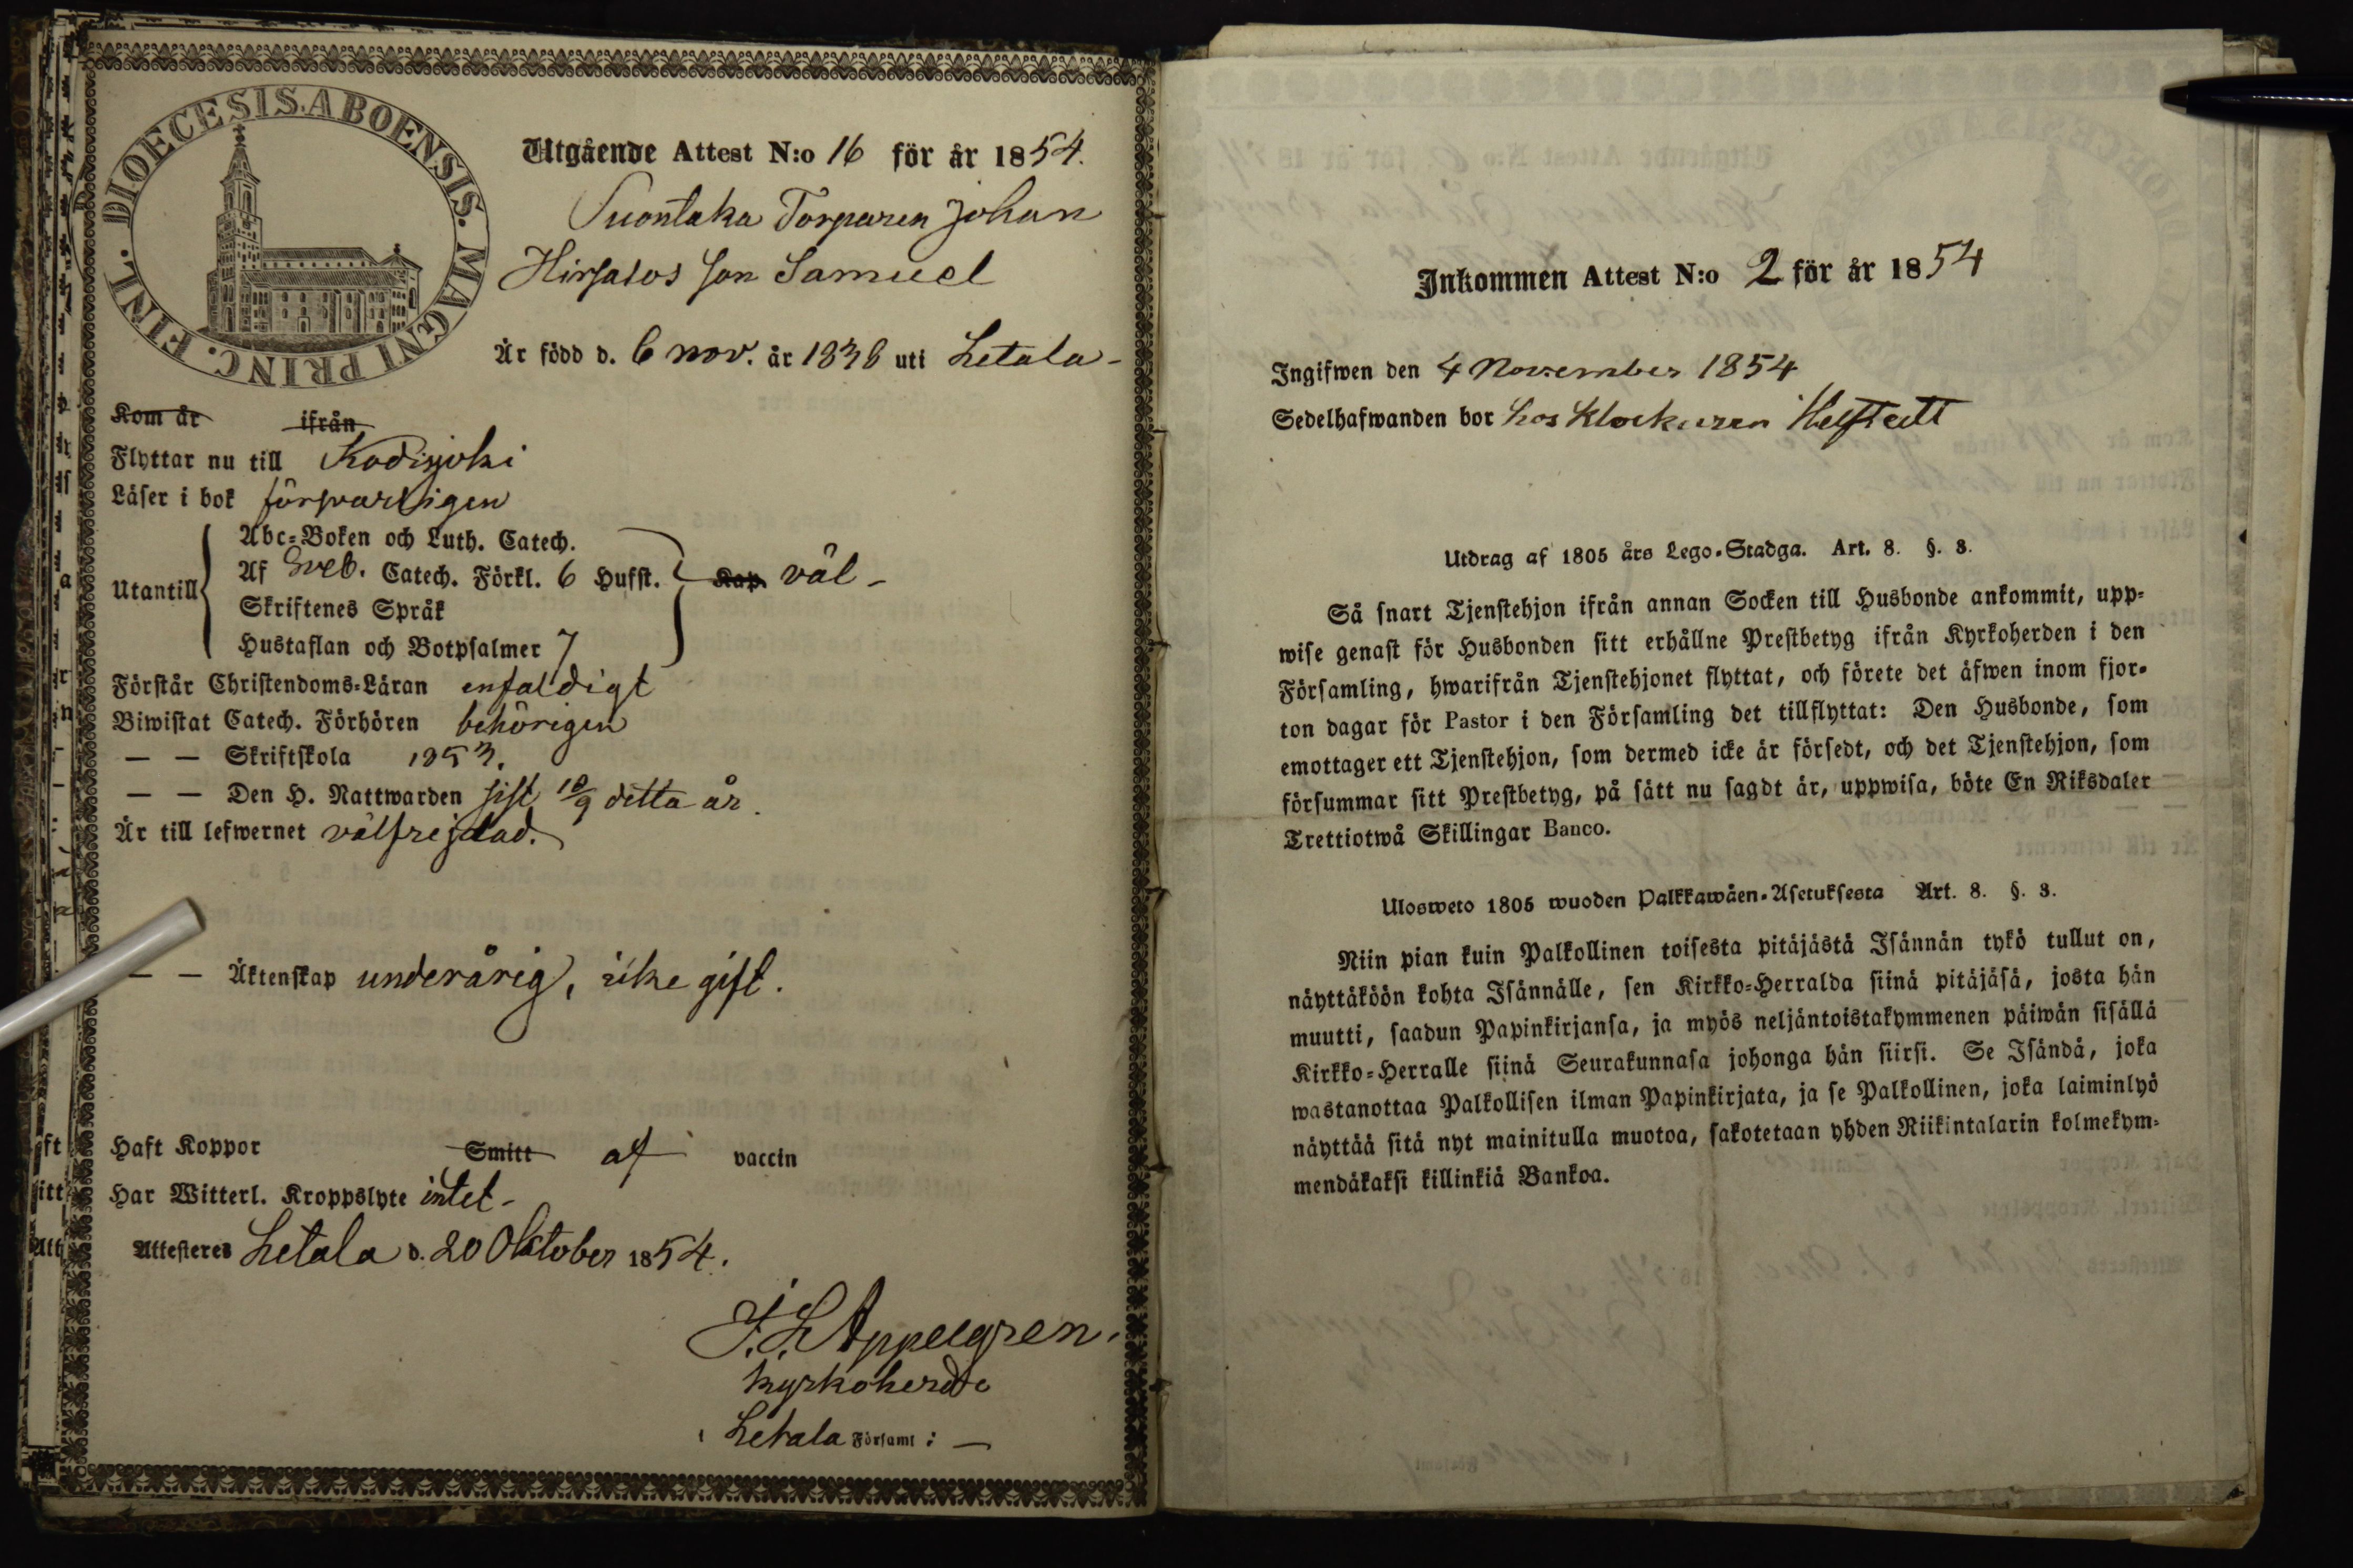 DIOECESIS ABOENSIS. MAGNI PRINC. FINL.
Utgående Attest N:o 16 för år 1854.
Suontaka Torparen Johan
Hirsalos son Samuel
Är född d. 6 nov. år 1838 uti Letala -
Kom år ifrån
Flyttar nu till Kodisjoki
Läser i bok försvarligen
Utantill
Abc-Boken och Luth. Catech.
Af Sveb. Catech. Förkl. 6 Hufst. Kap. väl -
Skriftenes Språk
Hustaflan och Botpsalmer 7
Förstår Christendoms-Läran enfaldigt
Biwistat Catech. Förhören behörigen
— — Skriftskola 1853.
— — Den H. Nattwarden sist 10/9 detta år.
Är till lefwernet välfrejdad.
— — Äktenskap underårig, icke gift.
Haft Koppor Smitt af vaccin
Har Witterl. Kroppslyte intet -
Attesteres Letala d. 20 Oktober 1854.
J. L. Appelgren.
Kyrkoherde
i Letala Församl: —
Inkommen Attest N:o 2 för år 1854
Ingifwen den 4 November 1854
Sedelhafwanden bor hos Klockaren Helstedt
Utdrag af 1805 års Lego-Stadga. Art. 8. §. 3.
Så snart Tjenstehjon ifrån annan Socken till Husbonde ankommit, upp-
wise genast för Husbonden sitt erhållne Prestbetyg ifrån Kyrkoherden i den
Församling, hwarifrån Tjenstehjonet flyttat, och förete det äfwen inom fjor-
ton dagar för Pastor i den Församling det tillflyttat: Den Husbonde, som
emottager ett Tjenstehjon, som dermed icke är försedt, och det Tjenstehjon, som
försummar sitt Prestbetyg, på sätt nu sagdt är, uppwisa, böte En Riksdaler
Trettiotwå Skillingar Banco.
Ulosweto 1805 wuoden Palkkawäen-Asetuksesta Art. 8. §. 3.
Niin pian kuin Palkollinen toisesta pitäjästä Isännän tykö tullut on,
näyttäköön kohta Isännälle, sen Kirkko-Herralda siinä pitäjäsä, josta hän
muutti, saadun Papinkirjansa, ja myös neljäntoistakymmenen päiwän sisällä
Kirkko-Herralle siinä Seurakunnasa johonga hän siirsi. Se Isändä, joka
wastanottaa Palkollisen ilman Papinkirjata, ja se Palkollinen, joka laiminlyö
näyttää sitä nyt mainitulla muotoa, sakotetaan yhden Riikintalarin kolmekym-
mendäkaksi killinkiä Bankoa.